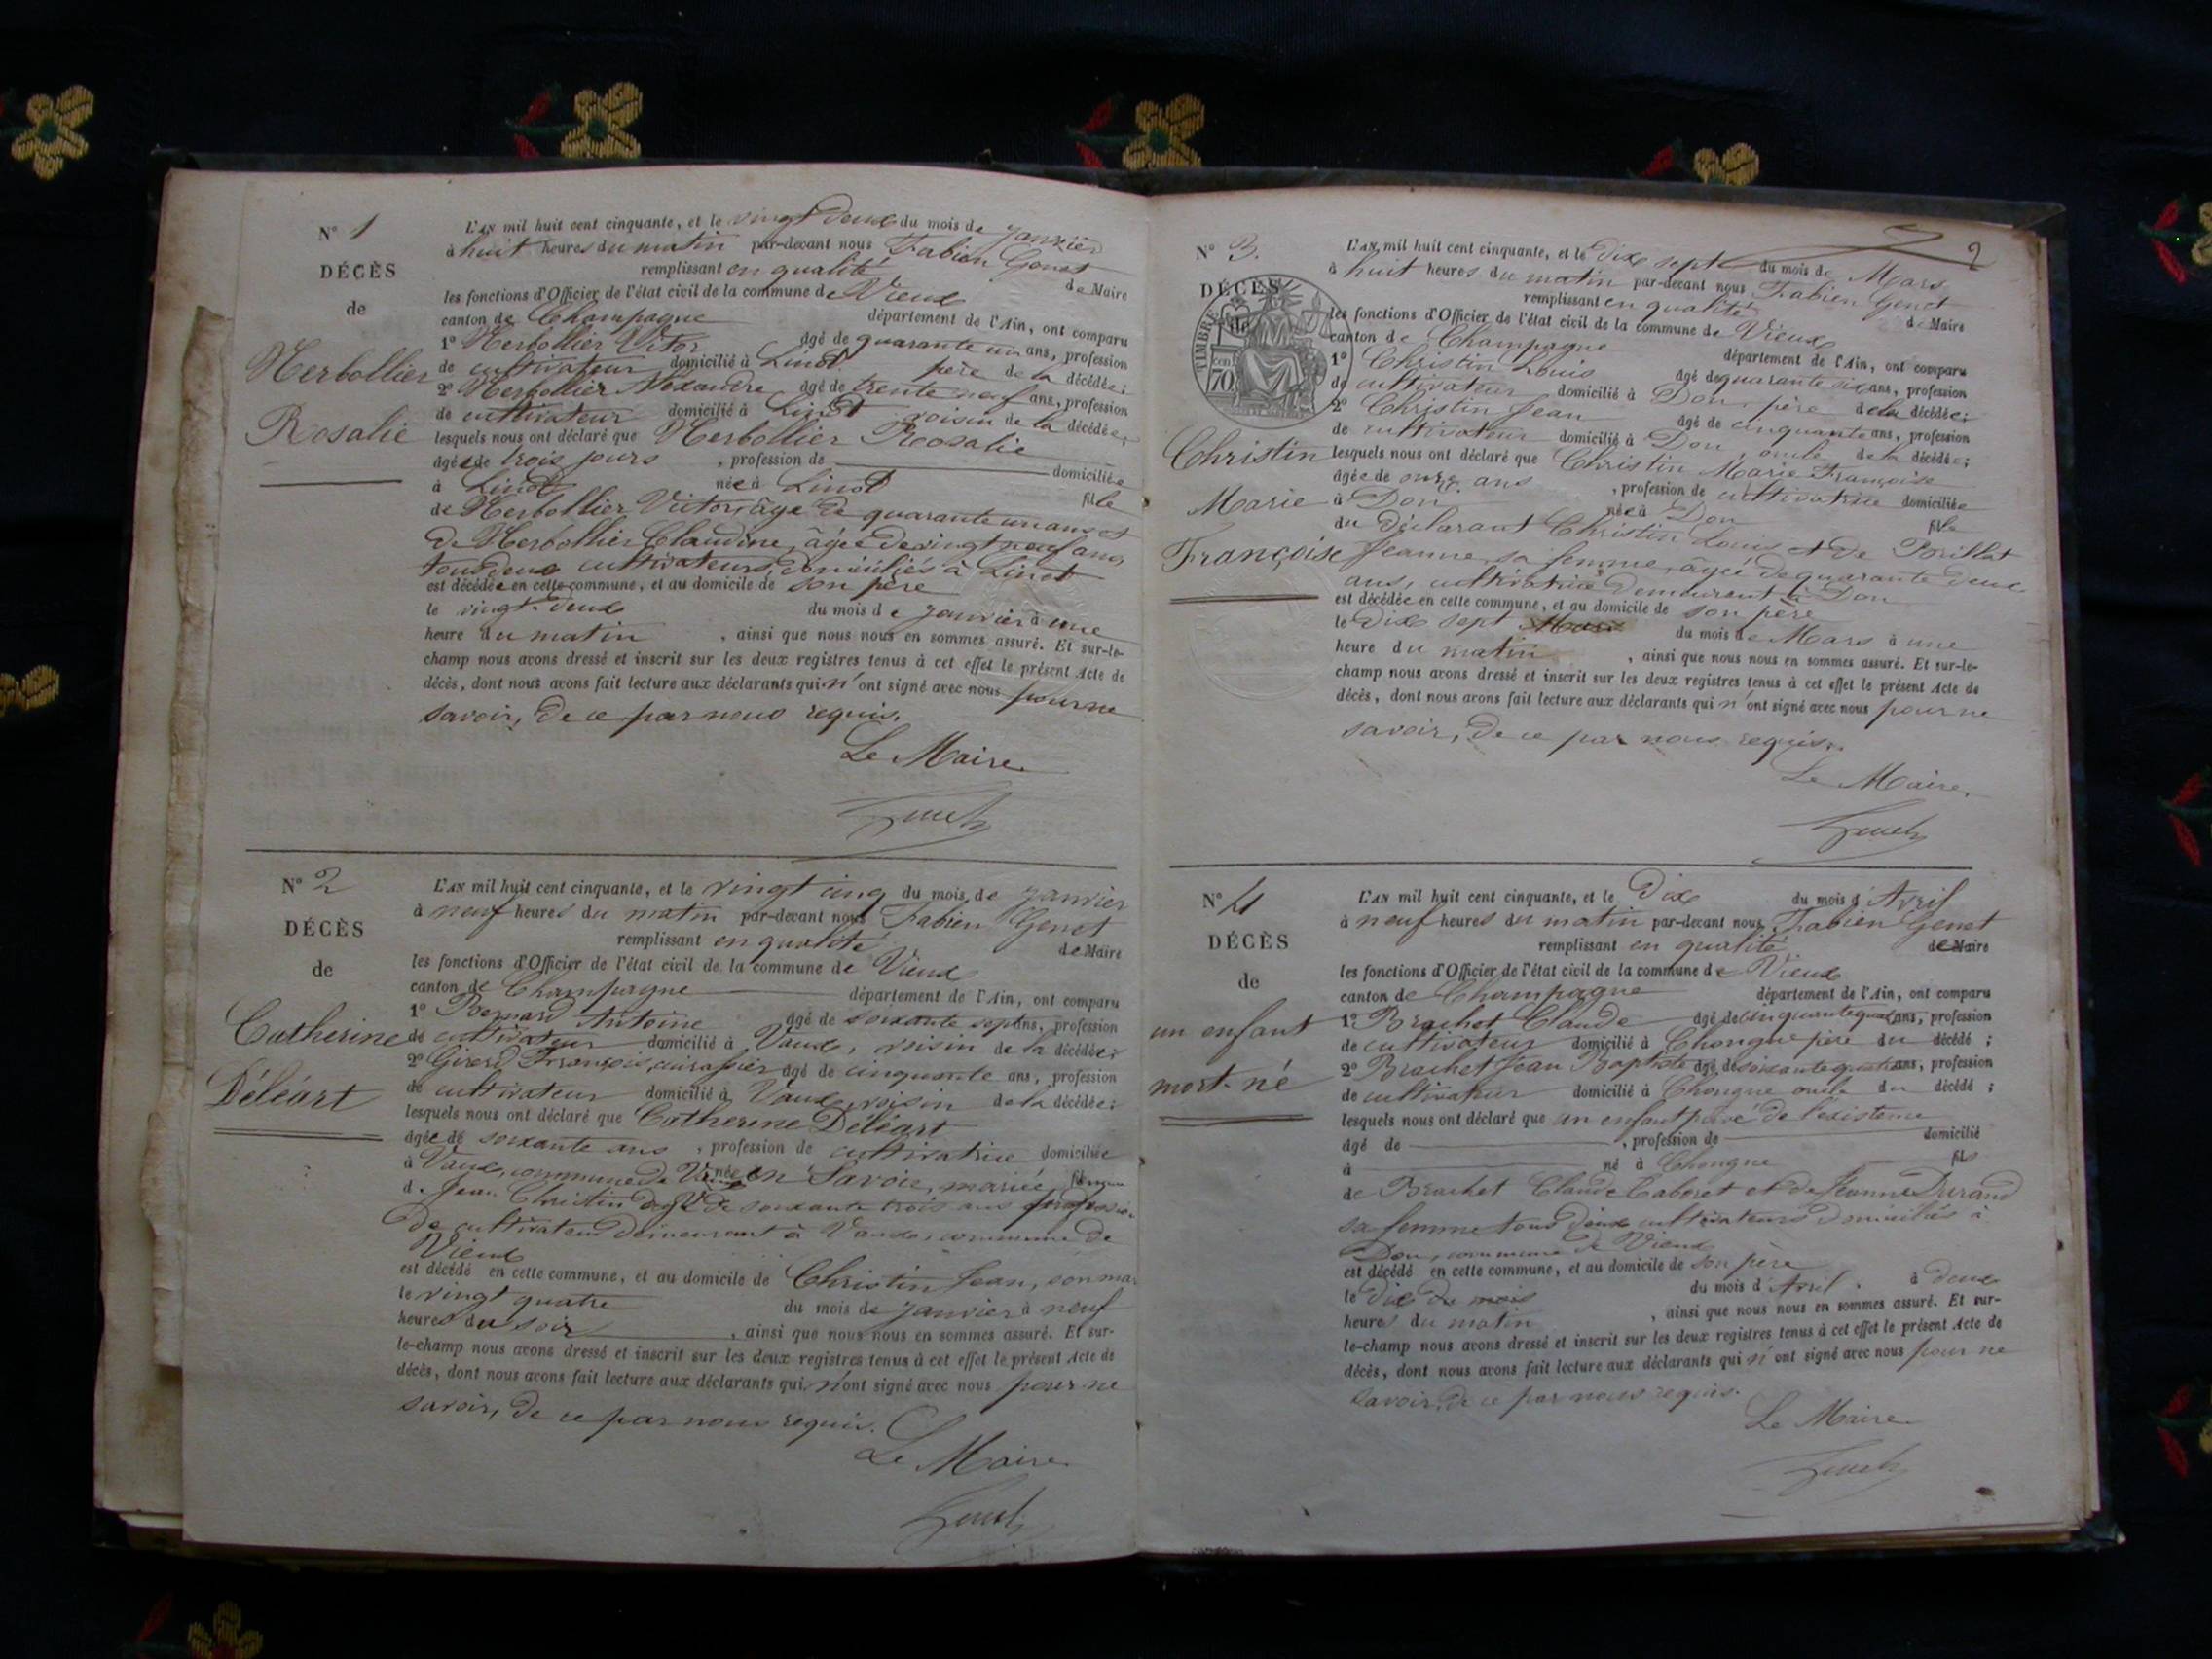 N° 1
DÉCÈS
de
Herbollier
Rosalie
L'AN mil huit cent cinquante, et le vingt deux du mois de janvier
à huit heures du matin par-devant nous Fabien Genet
remplissant en qualité de Maire
les fonctions d'Officier de l'état civil de la commune de Vieux
canton de Champagne département de l'Ain, ont comparu
1° Herbollier Victor âgé de quarante un ans, profession
de cultivateur domicilié à Linod père de la décédée;
2° Herbollier Alexandre âgé de trente neuf ans, profession
de cultivateur domicilié à Linod voisin de la décédée;
lesquels nous ont déclaré que Herbollier Rosalie
âgée de trois jours , profession de domiciliée
à Linod née à Linod fille
de Herbollier Victor, âgé de quarante un ans et
de Herbollier Claudine, âgée de vingt neuf ans,
tous deux cultivateurs, domiciliés à Linod
est décédée en cette commune, et au domicile de son père
le vingt-deux du mois de janvier à une
heure du matin , ainsi que nous nous en sommes assuré. Et sur-le-
champ nous avons dressé et inscrit sur les deux registres tenus à cet effet le présent Acte de
décès, dont nous avons fait lecture aux déclarants qui n'ont signé avec nous pour ne
savoir, de ce par nous requis.
Le Maire
Genet
N° 2
DÉCÈS
de
Catherine
Déléart
L'AN mil huit cent cinquante, et le vingt cinq du mois de janvier
à neuf heures du matin par-devant nous Fabien Genet
remplissant en qualité de Maire
les fonctions d'Officier de l'état civil de la commune de Vieux
canton de Champagne département de l'Ain, ont comparu
1° Bernard Antoine âgé de soixante sept ans, profession
de cultivateur domicilié à Vaux, voisin de la décédée;
2° Girerd François, cuirassier âgé de cinquante ans, profession
de cultivateur domicilié à Vaux, voisin de la décédée;
lesquels nous ont déclaré que Catherine Déléart
âgée de soixante ans , profession de cultivatrice domiciliée
à Vaux, commune de née en Savoie, mariée,
d. Jean Christin âgé de soixante trois ans profession
de cultivateur demeurant à Vaux, commune de
Vieux
est décédé en cette commune, et au domicile de Christin Jean, son mari
le vingt quatre du mois de janvier à neuf
heures du soir , ainsi que nous nous en sommes assuré. Et sur-
le-champ nous avons dressé et inscrit sur les deux registres tenus à cet effet le présent Acte de
décès, dont nous avons fait lecture aux déclarants qui n'ont signé avec nous pour ne
savoir, de ce par nous requis.
Le Maire
Genet
2
N° 3.
DÉCÈS
de
TIMBRE
70
Christin
Marie
Françoise
L'AN mil huit cent cinquante, et le dix sept du mois de Mars
à huit heures du matin par-devant nous Fabien Genet
remplissant en qualité de Maire
les fonctions d'Officier de l'état civil de la commune de Vieux
canton de Champagne département de l'Ain, ont comparu
1° Christin Louis âgé de quarante six ans, profession
de cultivateur domicilié à Don, père de la décédée;
2° Christin Jean âgé de cinquante ans, profession
de cultivateur domicilié à Don, oncle de la décédée;
lesquels nous ont déclaré que Christin Marie Françoise
âgée de onze ans , profession de cultivatrice domiciliée
à Don née à Don fille
du déclarant Christin Louis et de Brillat
Jeanne, sa femme, âgée de quarante deux
ans, cultivatrice demeurant à Don
est décédée en cette commune, et au domicile de son père
le dix sept Mars du mois de Mars à une
heure du matin , ainsi que nous nous en sommes assuré. Et sur-le-
champ nous avons dressé et inscrit sur les deux registres tenus à cet effet le présent Acte de
décès, dont nous avons fait lecture aux déclarants qui n'ont signé avec nous pour ne
savoir, de ce par nous requis.
Le Maire
Genet
N° 4
DÉCÈS
de
un enfant
mort-né
L'AN mil huit cent cinquante, et le dix du mois d'Avril
à neuf heures du matin par-devant nous Fabien Genet
remplissant en qualité de Maire
les fonctions d'Officier de l'état civil de la commune de Vieux
canton de Champagne département de l'Ain, ont comparu
1° Brachet Claude âgé de cinquante quatre ans, profession
de cultivateur domicilié à Chongne père du décédé ;
2° Brachet Jean Baptiste âgé de soixante quatre ans, profession
de cultivateur domicilié à Chongne oncle du décédé ;
lesquels nous ont déclaré que un enfant privé de l'existence
âgé de , profession de domicilié
à né à Chongne fils
de Brachet Claude Caboret et de Jeanne Durand
sa femme tous deux cultivateurs domiciliés à
Don, commune de Vieux
est décédé en cette commune, et au domicile de son père
le dix du mois du mois d'Avril à deux
heures du matin , ainsi que nous nous en sommes assuré. Et sur-
le-champ nous avons dressé et inscrit sur les deux registres tenus à cet effet le présent Acte de
décès, dont nous avons fait lecture aux déclarants qui n'ont signé avec nous pour ne
savoir, de ce par nous requis.
Le Maire
Genet